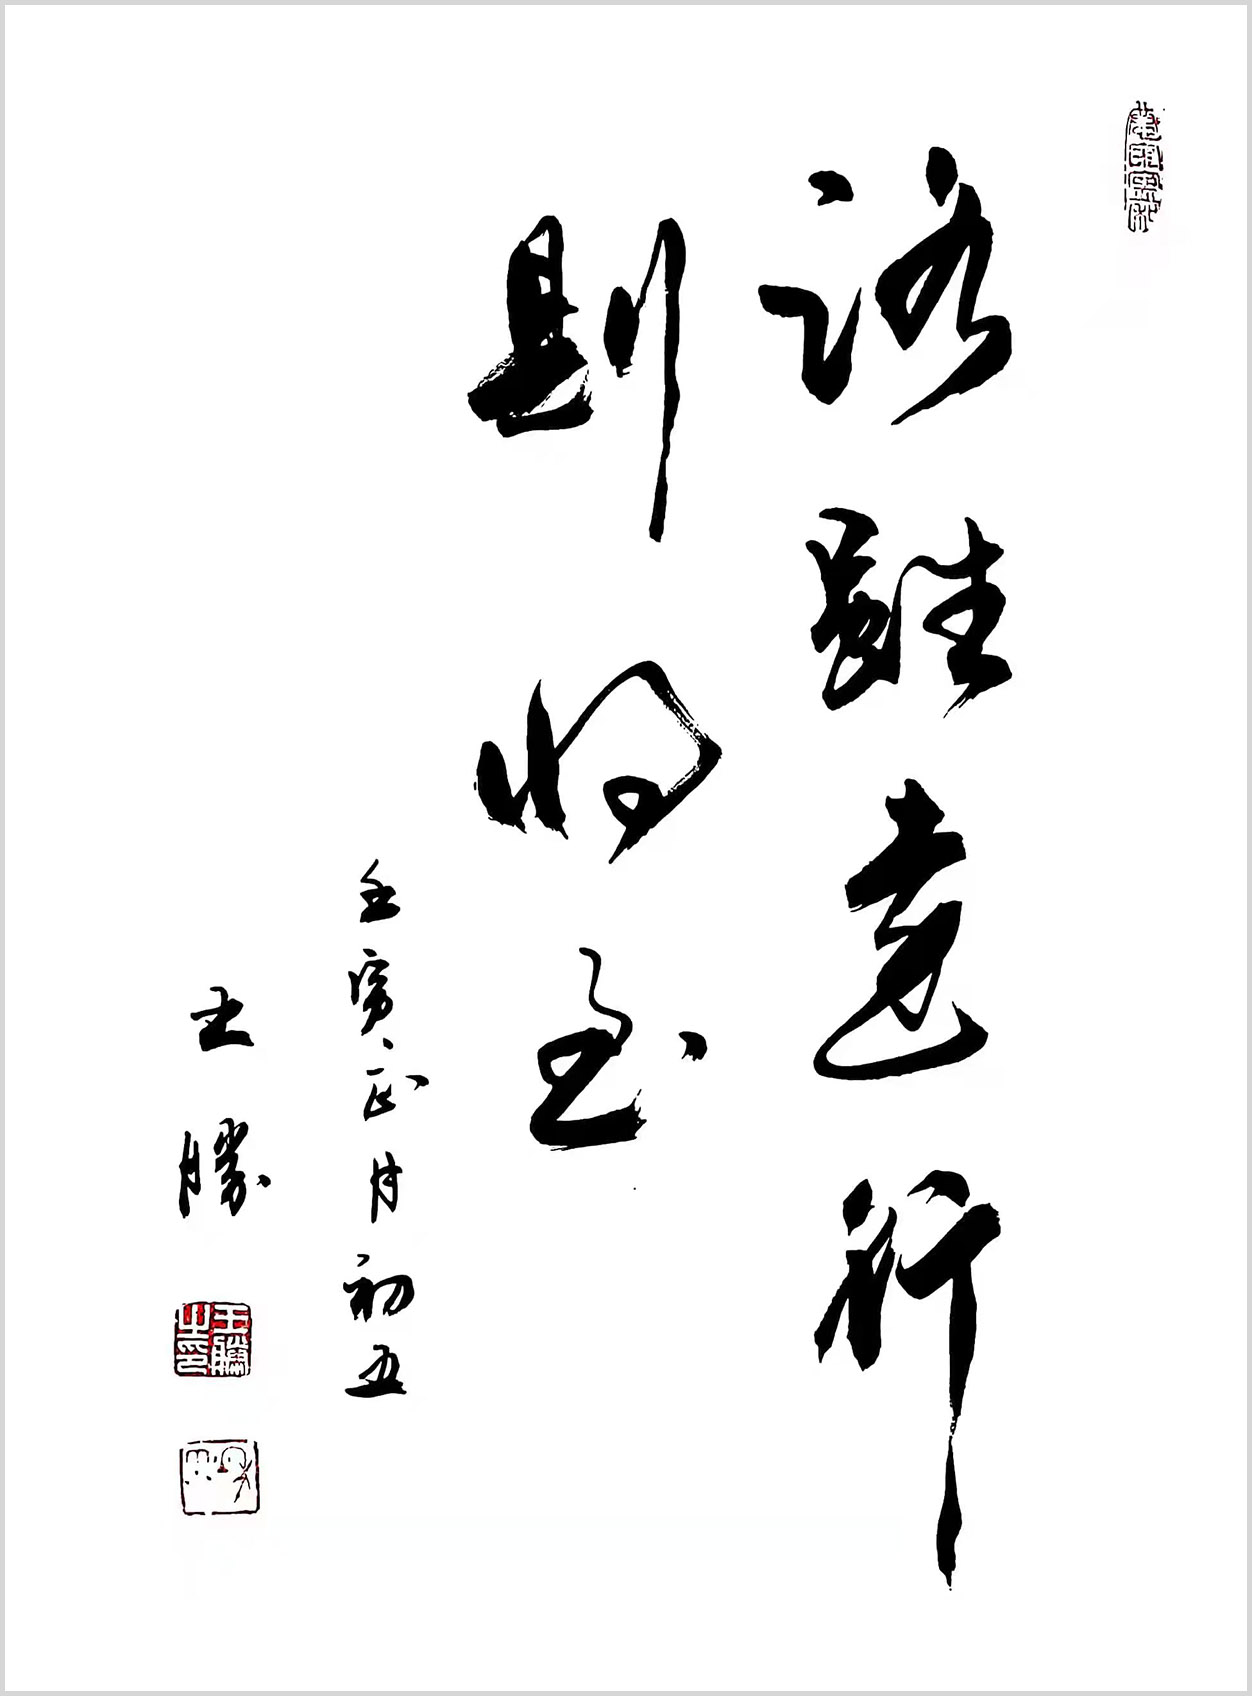 路雖遠行
則將至
壬寅正月初五
王勝
王勝之印